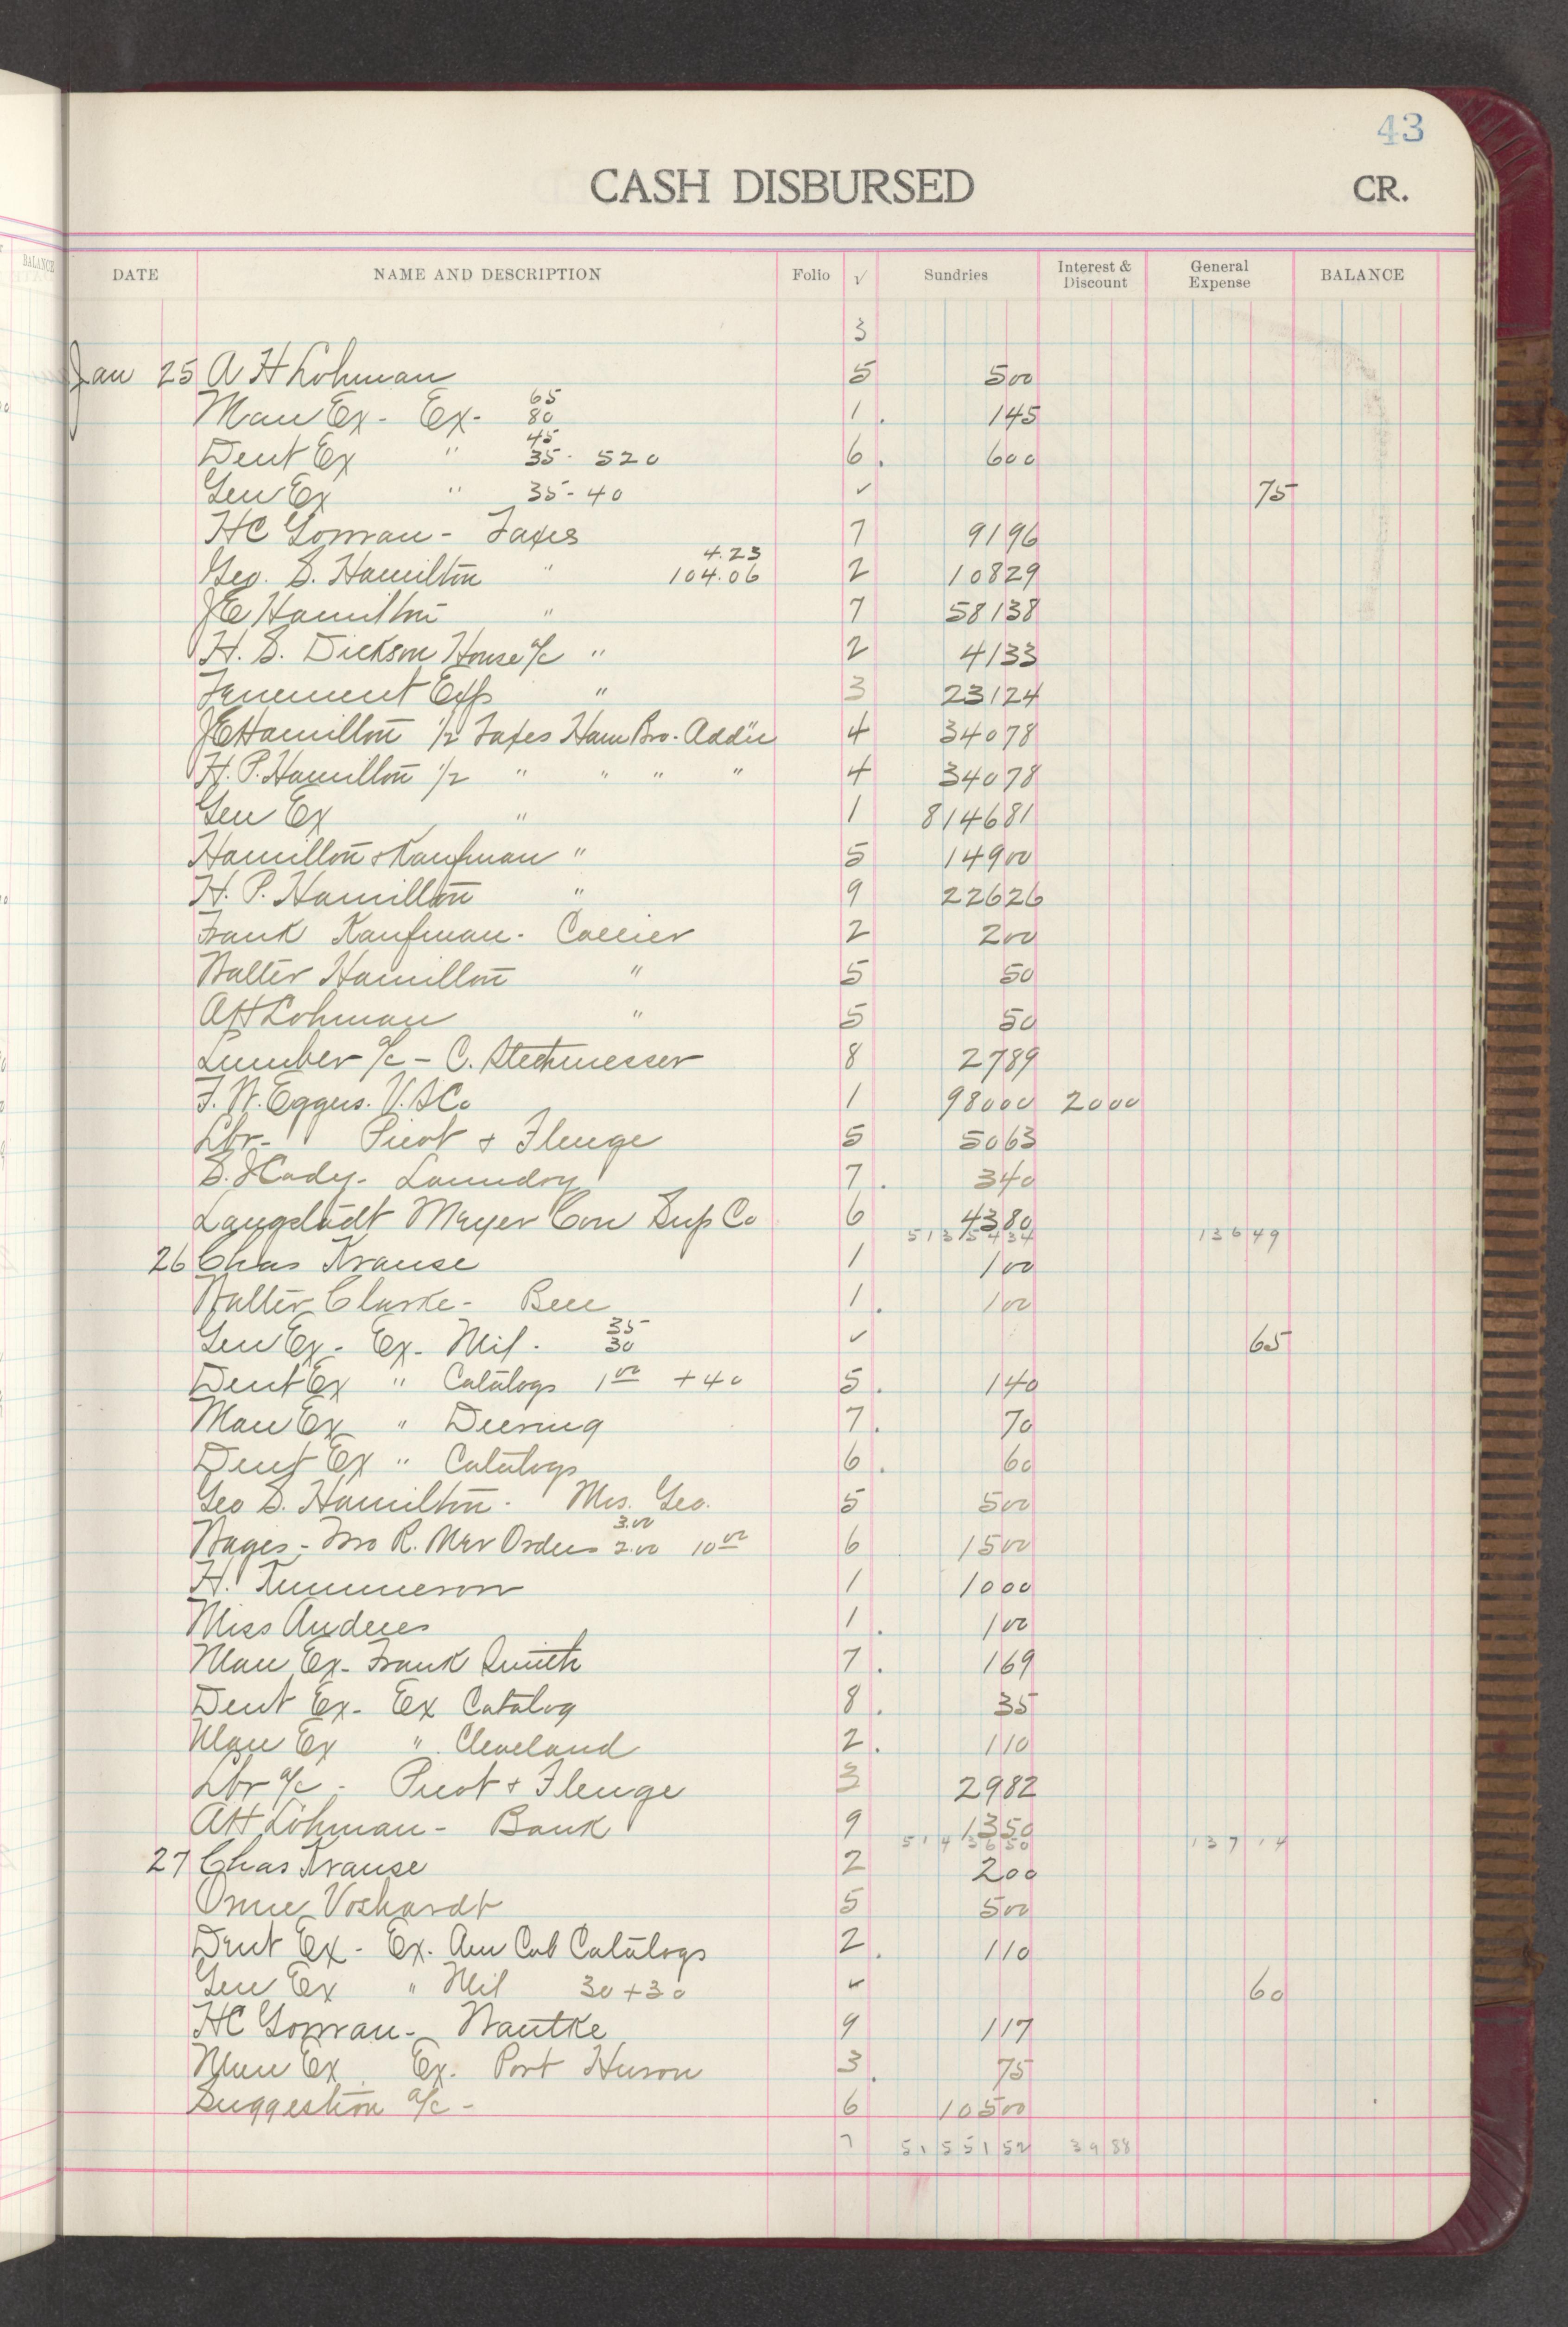 43
CASH DISBURSED CR.
BALANCE
DATE NAME AND DESCRIPTION Folio √ Sundries Interest & Discount General Expense BALANCE
3
Jan 25 A H Lohman 5 500
Man Ex - Ex- 65 80 1 . 145
Dent Ex " 45 35 - 520 6 . 600
Gen Ex " 35 - 40 ✓ 75
HC Gowran - Taxes 7 9196
Geo. S. Hamilton " 4.23 104.06 2 10829
JE Hamilton " 7 58138
H. S. Dickson House a/c " 2 4133
Tenement Exp " 3 23124
JE Hamilton 1/2 Taxes Ham Bro. Add'n 4 34078
H. P. Hamilton 1/2 " " " " 4 34078
Gen Ex " 1 814681
Hamilton & Kaufman " 5 14900
H. P. Hamilton " 9 22626
Frank Kaufman - Collier 2 200
Walter Hamilton " 5 50
AH Lohman " 5 50
Lumber a/c - C. Stechmesser 8 2789
F. W. Eggers. V. S Co 1 98000 2000
Lbr - Picot & Flenge 5 5063
S. J Cady - Laundry 7 . 340
Langstadt Meyer Con Sup Co 6 4380
5135434 13649
26 Chas Krause 1 100
Walter Clarke - Bee 1 . 100
Gen Ex - Ex - Mil - 35 30 ✓ 65
Dent Ex " Catalogs 1 00 + 40 5 . 140
Man Ex " Deering 7 . 70
Dent Ex " Catalogs 6 . 60
Geo S. Hamilton - Mrs. Geo. 5 500
Wages - Jno R. Mer Orders 3.00 2.00 10 00 6 1500
H. 1 1000
Miss Anderes 1 . 100
Man Ex - Frank Smith 7 . 169
Dent Ex - Ex Catalog 8 . 35
Man Ex " Cleveland 2 . 110
Lbr a/c - Picot & Flenge 3 2982
AH Lohman - Bank 9 1350
5143650 13714
27 Chas Krause 2 200
Omie Voshardt 5 500
Dent Ex - Ex. Am Cab Catalogs 2 . 110
Gen Ex " Mil 30 + 30 ✓ 60
HC Gowran - Wantke 9 117
Man Ex Ex. Port Huron 3 . 75
Suggestion a/c - 6 10500
7 5155152 3988